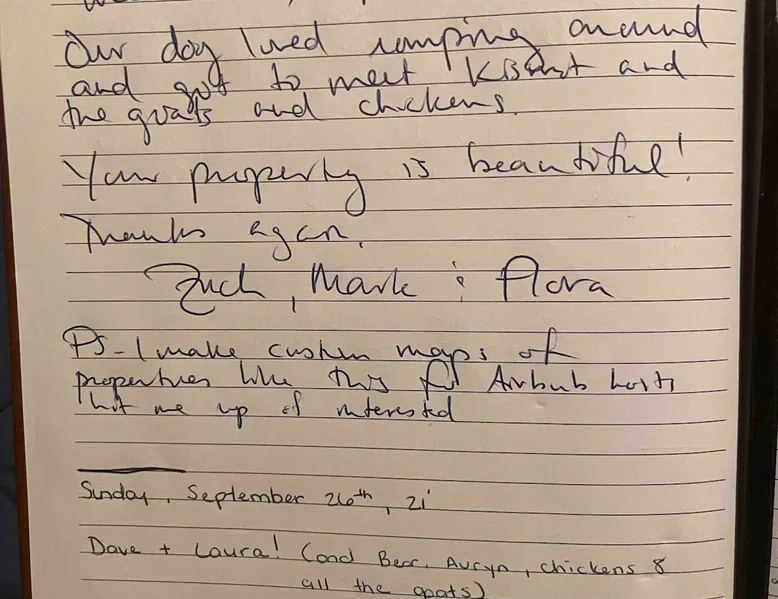 Our dog loved romping around
and got to meet and
the goats and chickens.
Your property is beautiful!
Thanks again,
Zach, Mark & Flora
PS - I make custom maps of
properties like this for Airbnb hosts
hit me up if interested
Sunday, September 26th, 21'
Dave + Laura! (and Bear, Auryn, chickens &
all the goats)